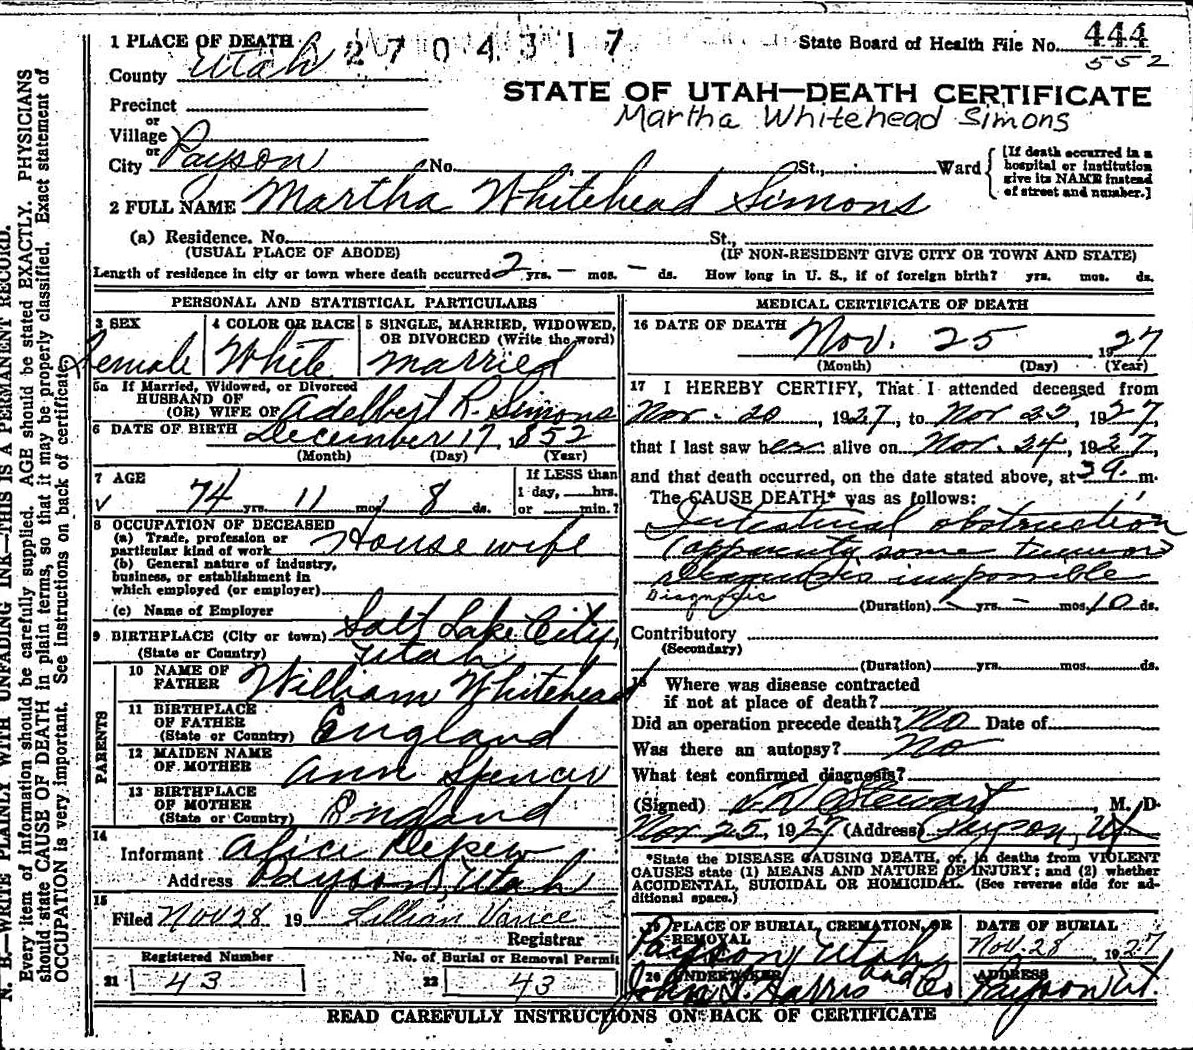 1 PLACE OF DEATH 2704317
State Board of Health File No. 444
552
County Utah
STATE OF UTAH—DEATH CERTIFICATE
Martha Whitehead Simons
Precinct
or
Village
or
City Payson No. St., Ward
[If death occurred in a hospital or institution give its NAME instead of street and number.]
2 FULL NAME Martha Whitehead Simons
(a) Residence. No. St.,
(USUAL PLACE OF ABODE) (IF NON-RESIDENT GIVE CITY OR TOWN AND STATE)
Length of residence in city or town where death occurred 2 yrs. — mos. — ds. How long in U. S., if of foreign birth? yrs. mos. ds.
PERSONAL AND STATISTICAL PARTICULARS
3 SEX
Female
4 COLOR OR RACE
White
5 SINGLE, MARRIED, WIDOWED, OR DIVORCED (Write the word)
married
5a If Married, Widowed, or Divorced
HUSBAND OF
(OR) WIFE OF Adelbert R. Simons
6 DATE OF BIRTH December 17, 1852
(Month) (Day) (Year)
7 AGE
74 yrs. 11 mos. 8 ds.
If LESS than
1 day, hrs.
or min.?
8 OCCUPATION OF DECEASED
(a) Trade, profession or
particular kind of work Housewife
(b) General nature of industry,
business, or establishment in
which employed (or employer)
(c) Name of Employer
9 BIRTHPLACE (City or town) Salt Lake City,
(State or Country) Utah
PARENTS
10 NAME OF
FATHER William Whitehead
11 BIRTHPLACE
OF FATHER
(State or Country) England
12 MAIDEN NAME
OF MOTHER Ann Spencer
13 BIRTHPLACE
OF MOTHER
(State or Country) England
14
Informant Alice Depew
Address Payson, Utah
15
Filed Nov 28 19 Lillian Vance
Registrar
Registered Number No. of Burial or Removal Permit
21 43 22 43
MEDICAL CERTIFICATE OF DEATH
16 DATE OF DEATH Nov. 25, 1927
(Month) (Day) (Year)
17 I HEREBY CERTIFY, That I attended deceased from
Nov. 20, 1927, to Nov 1927,
that I last saw her alive on Nov. 24, 1927,
and that death occurred, on the date stated above, at m.
The CAUSE DEATH* was as follows:
Intestinal obstruction
some tumor
impossible
Diagnosis
(Duration) — yrs. — mos. 10 ds.
Contributory
(Secondary)
(Duration) yrs. mos. ds.
18 Where was disease contracted
if not at place of death?
Did an operation precede death? No Date of
Was there an autopsy? No
What test confirmed diagnosis?
(Signed) Stewart, M. D.
Nov 25, 1927 (Address) Payson, Ut
*State the DISEASE CAUSING DEATH, or, in deaths from VIOLENT
CAUSES state (1) MEANS AND NATURE OF INJURY; and (2) whether
ACCIDENTAL, SUICIDAL OR HOMICIDAL. (See reverse side for additional space.)
19 PLACE OF BURIAL, CREMATION, OR REMOVAL
Payson Utah
DATE OF BURIAL
Nov. 28, 1927
20 UNDERTAKER
John Harris and Co
ADDRESS
Payson Ut.
READ CAREFULLY INSTRUCTIONS ON BACK OF CERTIFICATE
N. B.—WRITE PLAINLY WITH UNFADING INK—THIS IS A PERMANENT RECORD.
Every item of information should be carefully supplied. AGE should be stated EXACTLY. PHYSICIANS
should state CAUSE OF DEATH in plain terms, so that it may be properly classified. Exact statement of
OCCUPATION is very important. See instructions on back of certificate.